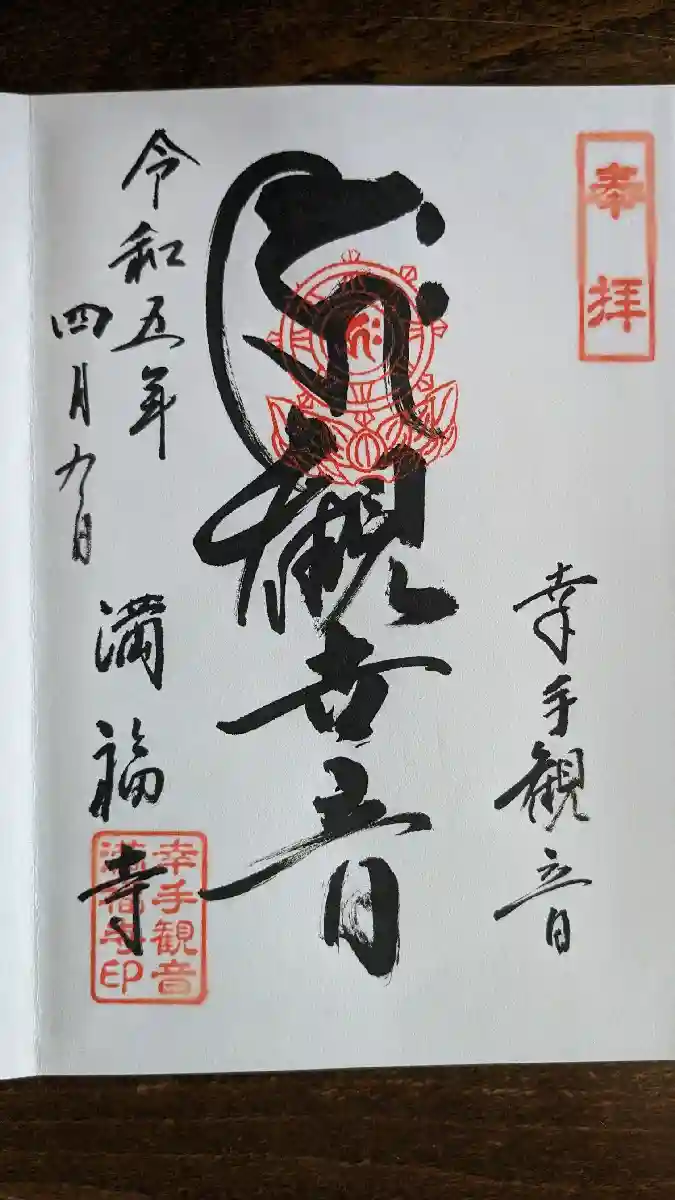 奉拝
幸手観音
観世音
令和五年
四月九日
満福寺
幸手観音
満福寺印